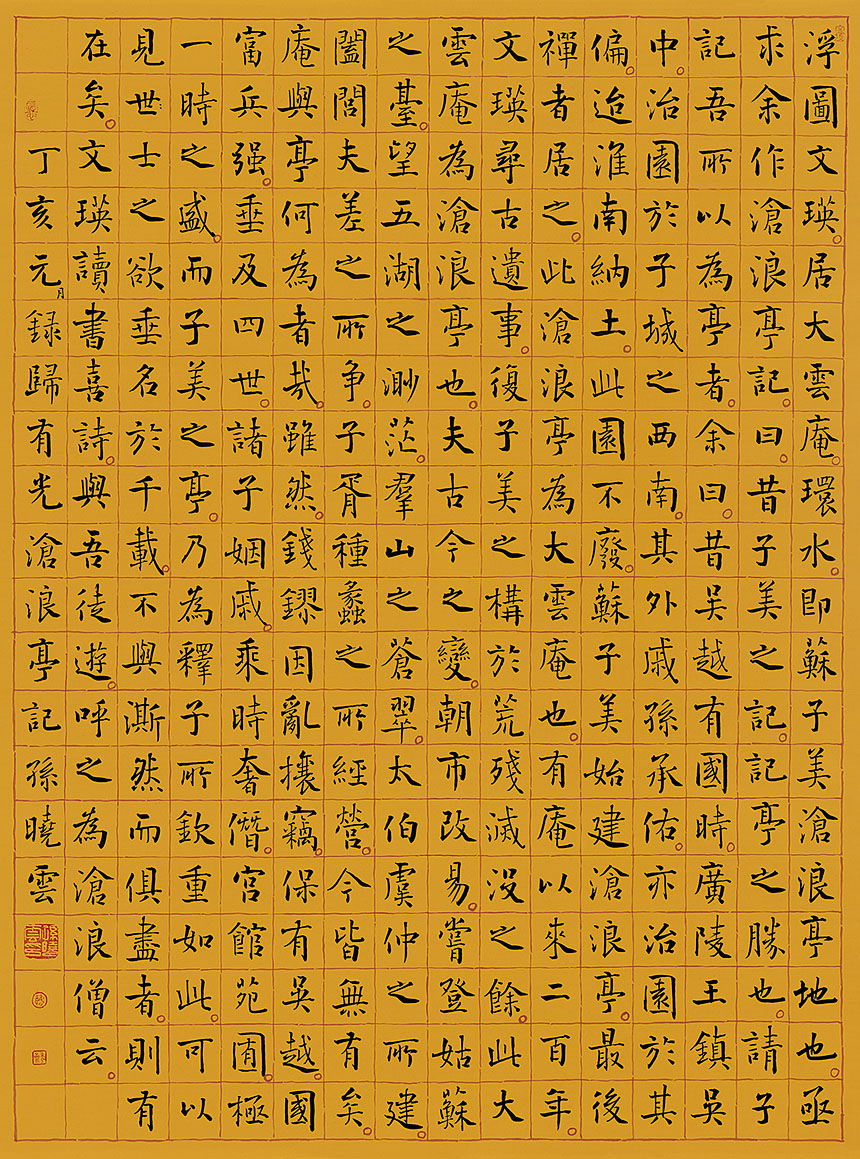 浮圖文瑛。居大雲庵。環水。即蘇子美滄浪亭地也。亟
求余作滄浪亭記。曰。昔子美之記。記亭之勝也。請子
記吾所以為亭者。余曰。昔吳越有國時。廣陵王鎮吳
中。治園於子城之西南。其外戚孫承佑。亦治園於其
偏。迨淮南納土。此園不廢。蘇子美始建滄浪亭。最後
禪者居之。此滄浪亭為大雲庵也。有庵以來二百年。
文瑛尋古遺事。復子美之構於荒殘滅沒之餘。此大
雲庵為滄浪亭也。夫古今之變。朝市改易。嘗登姑蘇
之臺。望五湖之渺茫。羣山之蒼翠。太伯虞仲之所建。
闔閭夫差之所争。子胥種蠡之所經營。今皆無有矣。
庵與亭何為者哉。雖然。錢鏐因亂攘竊。保有吳越。國
富兵强。垂及四世。諸子姻戚。乘時奢僭。宮館苑囿。極
一時之盛。而子美之亭。乃為釋子所欽重如此。可以
見世士之欲垂名於千載。不與澌然而俱盡者。則有
在矣。文瑛讀書喜詩。與吾徒遊。呼之為滄浪僧云。
丁亥元月録歸有光滄浪亭記孫曉雲